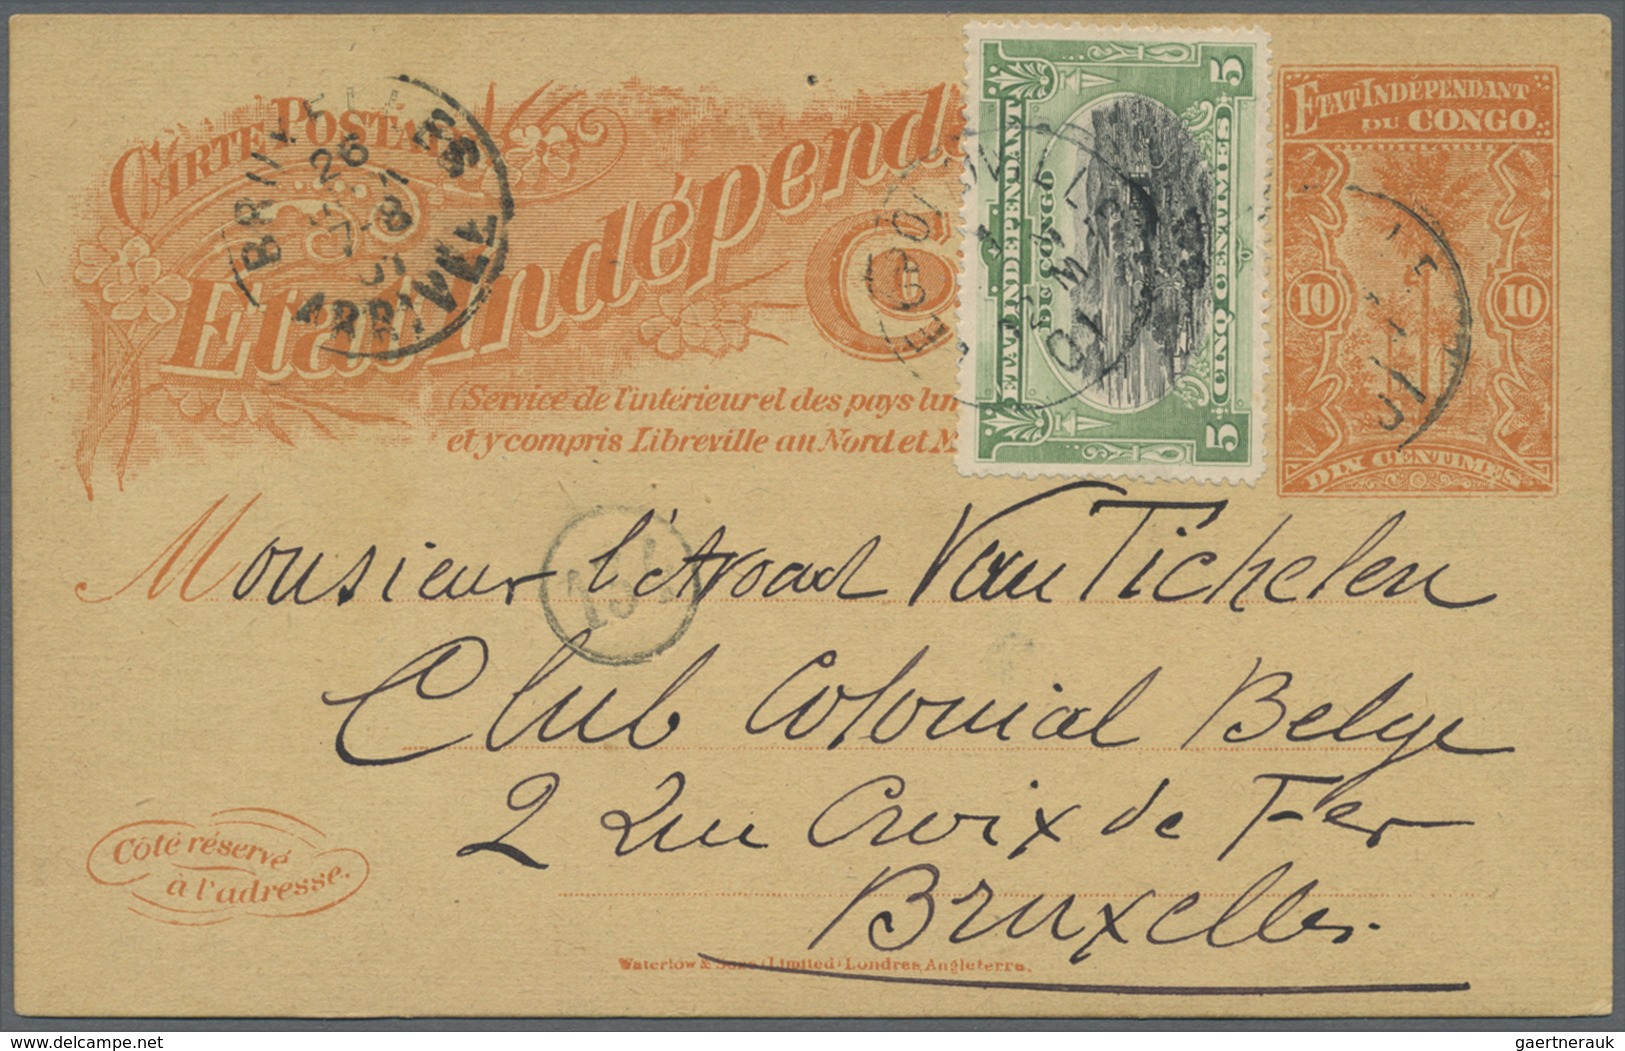 CARTE POSTALE
Etat Indépend
C
(Service de l'intérieur et des pays lim
et y compris Libreville au Nord et M
BRUXELLES
26
ARRIVÉE
5
ETAT INDÉPENDANT
DU CONGO
CINQ CENTIMES
5
ETAT INDÉPENDANT
DU CONGO
10
10
DIX CENTIMES
Monsieur l'Avocat Van Tichelen
Club Colonial Belge
2 Rue Croix de Fer
Bruxelles.
Côté réservé
à l'adresse.
Waterlow & Sons (Limited) Londres, Angleterre.
delcampe.net
gaertnerauk